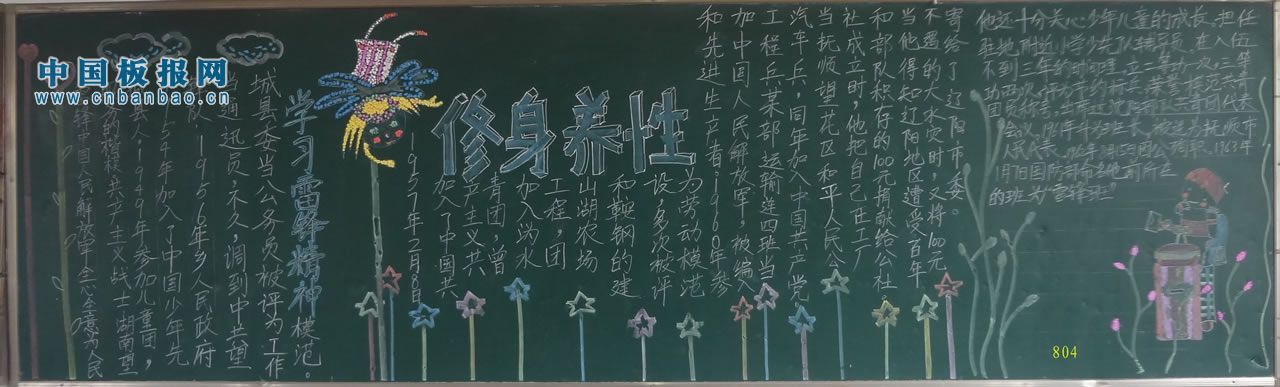 中国板报网
www.cnbanbao.cn
修身养性
学习雷锋精神
锋中国人民解放军全心全意为人民
务的楷模共产主义战士湖南望
县人1949年参加儿童团，
1954年加入了中国少年先
队，1956年乡人民政府
当通迅员，不久，调到中共望
城县委当公务员被评为工作
模范。
1957年2月8日
加入了中国共
产主义共
青团，曾
加入沩水
工程，团
山湖农场
和鞍钢的建
设，多次被评
为劳动模范
和先进生产者.1960年参
加中国人民解放军，被编入
工程兵某部运输连四班当
汽车兵，同年加入中国共产党
当抚顺望花区和平人民公
社成立时，他把自己在工厂
和部队积存的100元捐献给公社
当他得知辽阳地区遭受百年
不遇的大水灾时，又将100元
寄给了辽阳市委。
他还十分关心少年儿童的成长，担任
驻地附近小学少先队辅导员，在入伍
不到三年的时间里，立二等功一次，三等
人民代表
1963年
国防部命名他
的班为"雷锋班"
804